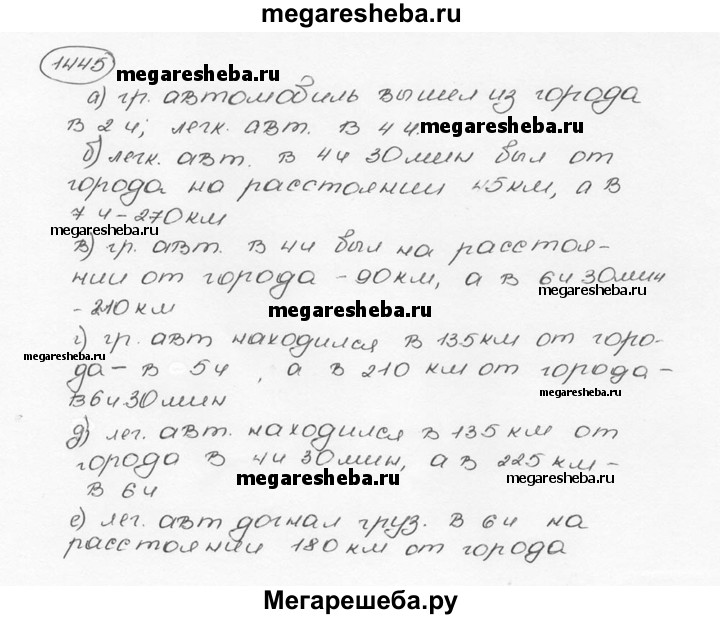 megaresheba.ru
1445
megaresheba.ru
а) гр. автомобиль вышел из города
в 2 ч; легк. авт. в 4 ч.
megaresheba.ru
б) легк. авт. в 4ч 30мин был от
города на расстоянии 45км, а в
7 ч - 270км
megaresheba.ru
в) гр. авт. в 4ч был на расстоя-
нии от города - 90км, а в 6ч 30мин
megaresheba.ru
- 210 км
megaresheba.ru
г) гр. авт находился в 135км от горо-
megaresheba.ru
да - в 5ч , а в 210 км от города -
megaresheba.ru
в 6ч 30мин
д) лег. авт. находился в 135 км от
города в 4ч 30мин, а в 225 км -
megaresheba.ru
megaresheba.ru
в 6ч
е) лег. авт догнал груз. в 6ч на
расстоянии 180 км от города
Мегарешеба.ру